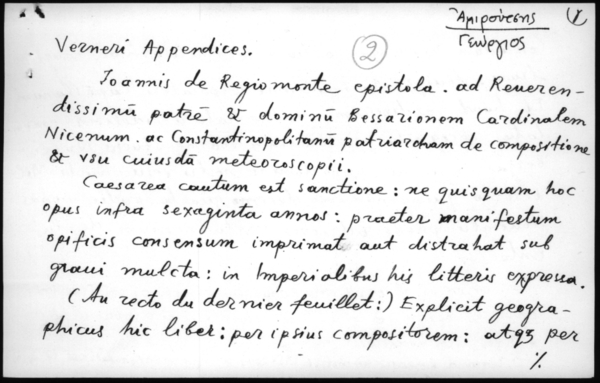 Ἀμιρούτσης
Γεώργιος
1
Verneri Appendices.
2
Ioannis de Regiomonte epistola. ad Reueren-
dissimū patrē & dominū Bessarionem Cardinalem
Nicenum. ac Constantinopolitanū patriarcham de compositione
& vsu cuiusdā meteoroscopii.
Caesarea cautum est sanctione: ne quisquam hoc
opus infra sexaginta annos: praeter manifestum
opificis consensum imprimat aut distrahat sub
graui mulcta: in Imperialibus his litteris expressa.
(Au recto du dernier feuillet:) Explicit geogra-
phicus hic liber: per ipsius compositorem: atqȝ per
%